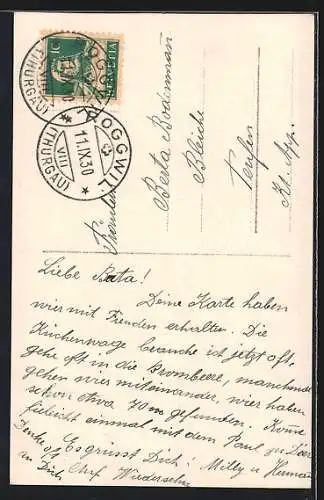 HELVETIA
ROGGWIL
(THURGAU)
11.IX.30
VIII
ROGGWIL
(THURGAU)
Fräulein
Berta Bodenmann
Bleiche
Teufen
Kt. App.
Liebe Berta!
Deine Karte haben
wir mit Freuden erhalten. Die
Küchenwage brauche ich jetzt oft,
gehe oft in die Brombeere, manchmal
gehen wir miteinander, wir haben
schon etwa gefunden. Komme
vieleicht einmal mit dem Paul zu Dir
Es grüsst Dich! Milly u Hermann
Denke oft
an Dich Auf Wiedersehn